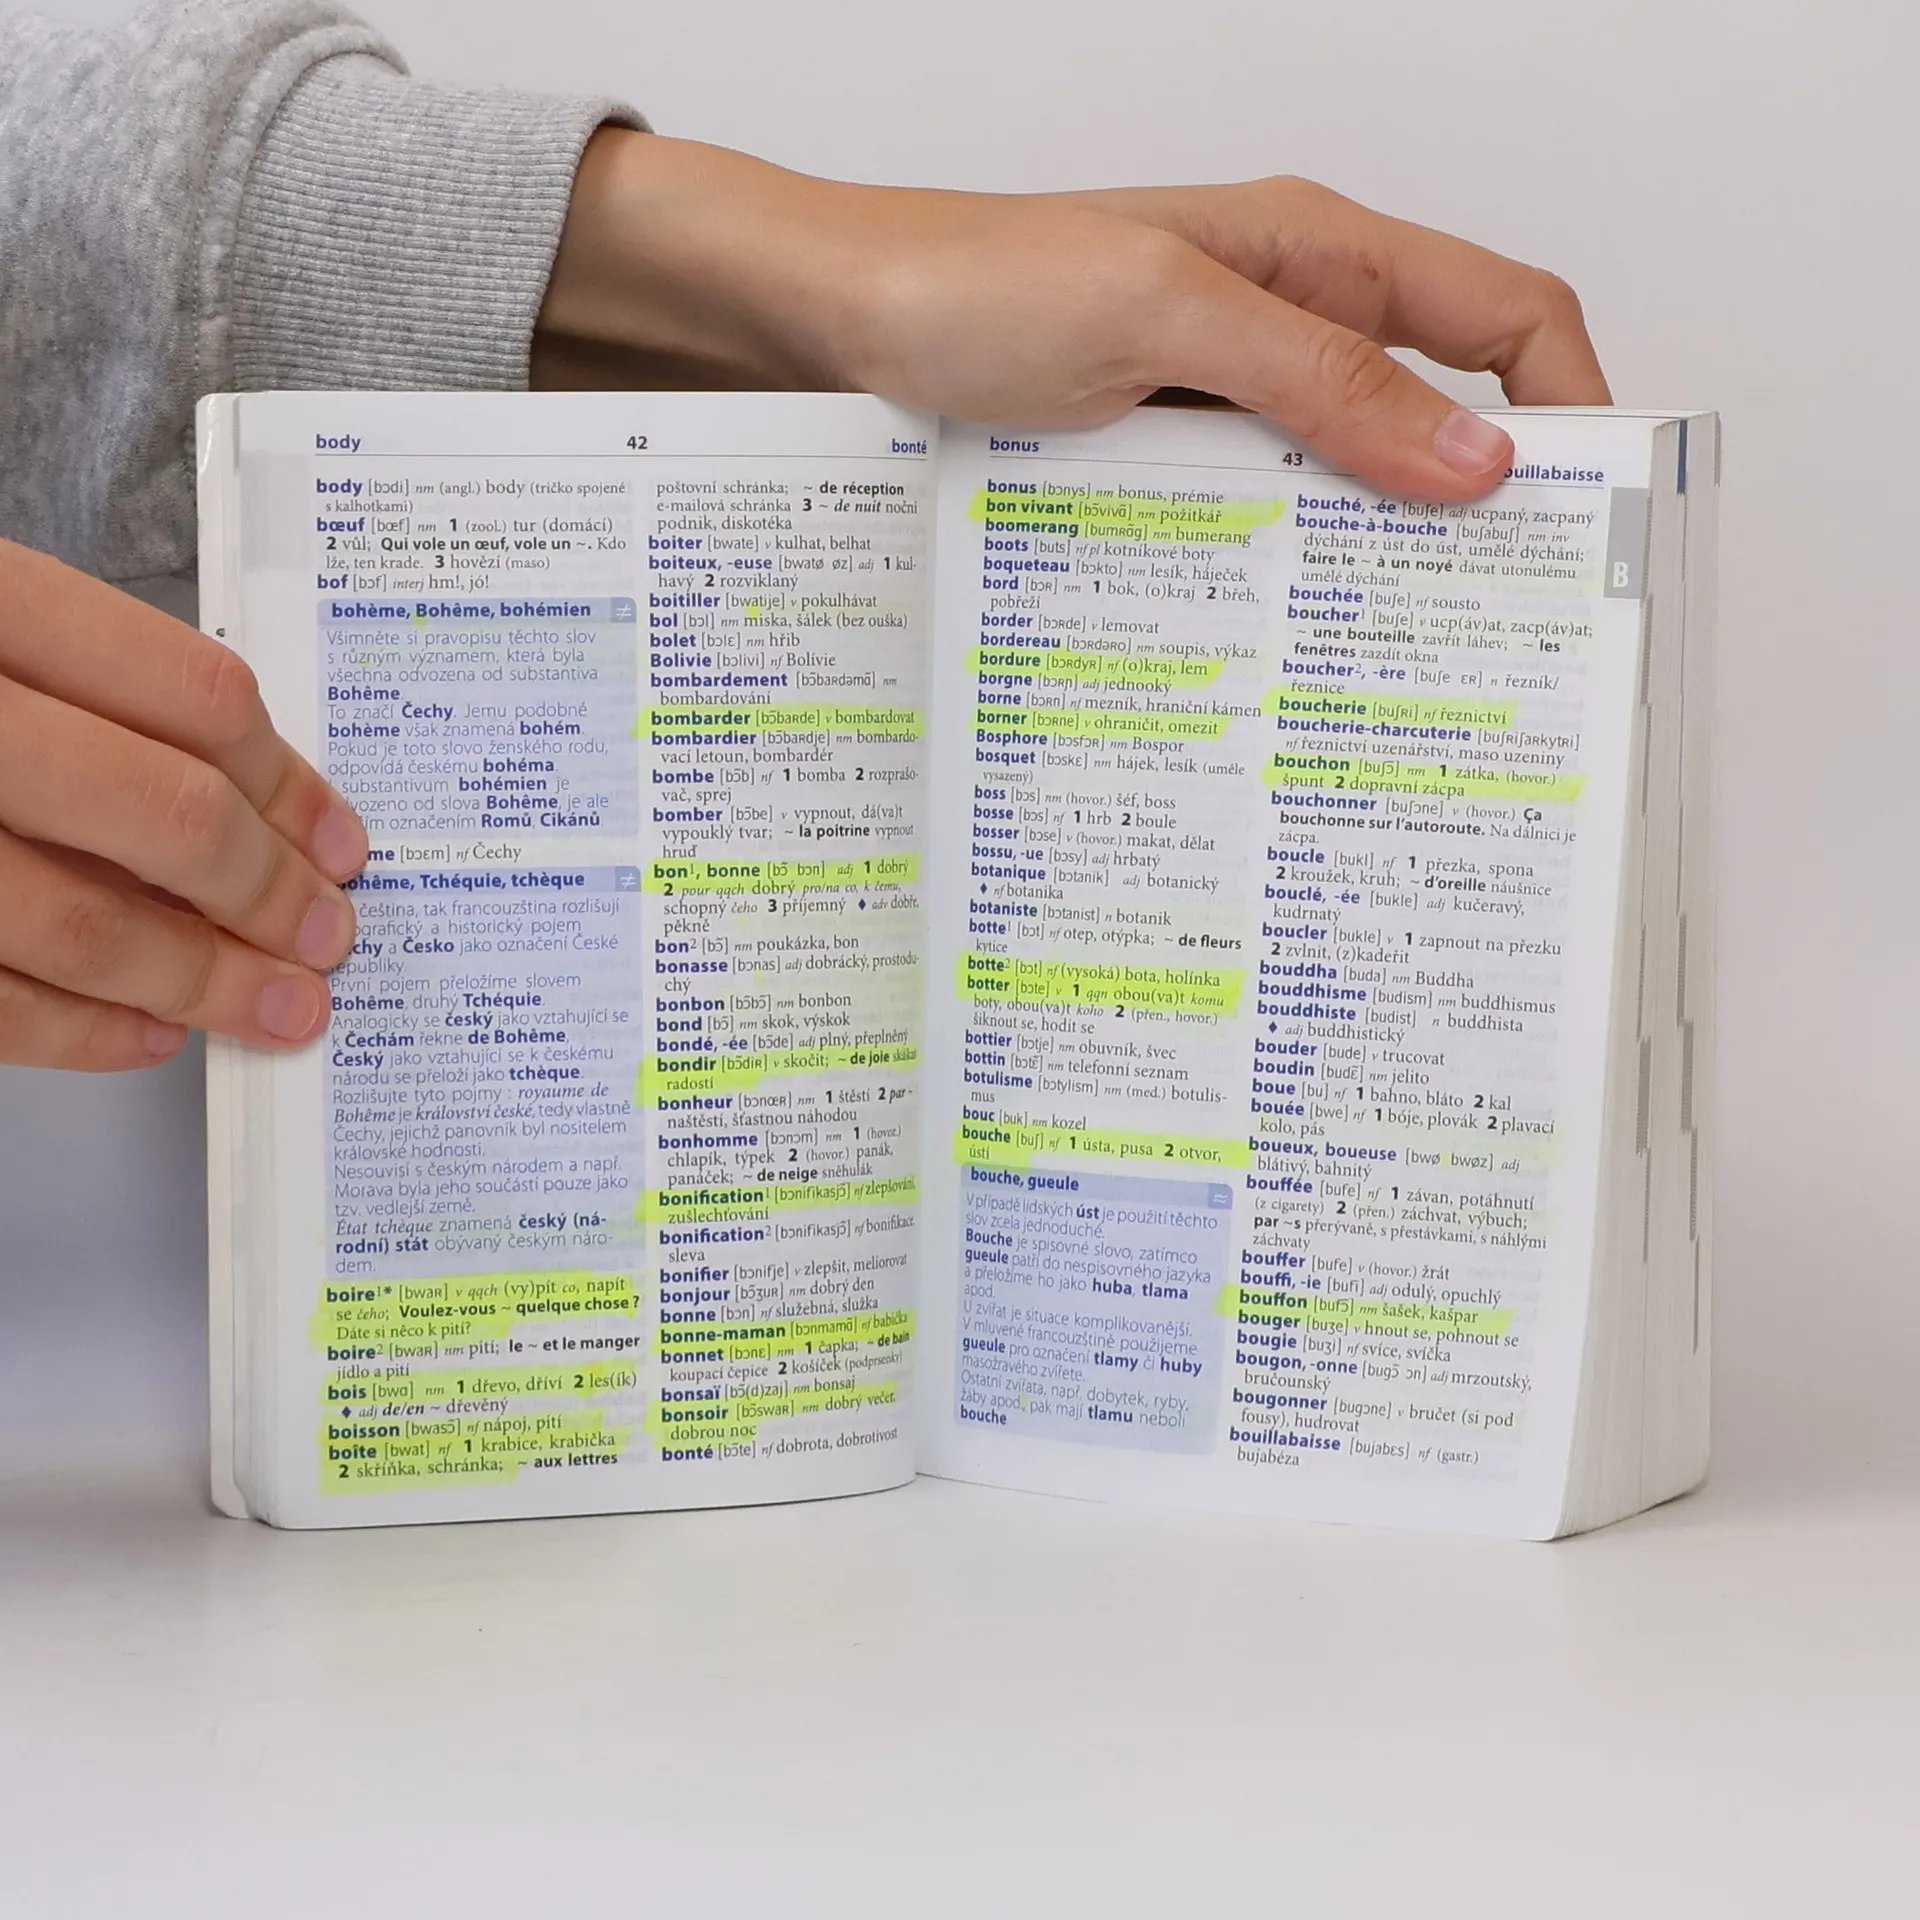 body 42 bonté
body [bɔdi] nm (angl.) body (tričko spojené
s kalhotkami)
bœuf [bœf] nm 1 (zool.) tur (domácí)
2 vůl; Qui vole un œuf, vole un ~. Kdo
lže, ten krade. 3 hovězí (maso)
bof [bɔf] interj hm!, jó!
bohème, Bohême, bohémien ≠
Všimněte si pravopisu těchto slov
s různým významem, která byla
všechna odvozena od substantiva
Bohême.
To značí Čechy. Jemu podobné
bohème však znamená bohém.
Pokud je toto slovo ženského rodu,
odpovídá českému bohéma.
substantivum bohémien je
vozeno od slova Bohême, je ale
ím označením Romů, Cikánů.
me [bɔɛm] nf Čechy
ohême, Tchéquie, tchèque ≠
čeština, tak francouzština rozlišují
ografický a historický pojem
chy a Česko jako označení České
republiky.
První pojem přeložíme slovem
Bohême, druhý Tchéquie.
Analogicky se český jako vztahující se
k Čechám řekne de Bohême,
Český jako vztahující se k českému
národu se přeloží jako tchèque.
Rozlišujte tyto pojmy : royaume de
Bohême je království české, tedy vlastně
Čechy, jejichž panovník byl nositelem
královské hodnosti.
Nesouvisí s českým národem a např.
Morava byla jeho součástí pouze jako
tzv. vedlejší země.
État tchèque znamená český (ná-
rodní) stát obývaný českým náro-
dem.
boire¹* [bwaʀ] v qqch (vy)pít co, napít
se čeho; Voulez-vous ~ quelque chose ?
Dáte si něco k pití?
boire² [bwaʀ] nm pití; le ~ et le manger
jídlo a pití
bois [bwɑ] nm 1 dřevo, dříví 2 les(ík)
♦ adj de/en ~ dřevěný
boisson [bwasɔ̃] nf nápoj, pití
boîte [bwat] nf 1 krabice, krabička
2 skříňka, schránka; ~ aux lettres
poštovní schránka; ~ de réception
e-mailová schránka 3 ~ de nuit noční
podnik, diskotéka
boiter [bwate] v kulhat, belhat
boiteux, -euse [bwatø øz] adj 1 kul-
havý 2 rozviklaný
boitiller [bwatije] v pokulhávat
bol [bɔl] nm miska, šálek (bez ouška)
bolet [bɔlɛ] nm hřib
Bolivie [bɔlivi] nf Bolívie
bombardement [bɔ̃baʀdəmɑ̃] nm
bombardování
bombarder [bɔ̃baʀde] v bombardovat
bombardier [bɔ̃baʀdje] nm bombardo-
vací letoun, bombardér
bombe [bɔ̃b] nf 1 bomba 2 rozprašo-
vač, sprej
bomber [bɔ̃be] v vypnout, dá(va)t
vypouklý tvar; ~ la poitrine vypnout
hruď
bon¹, bonne [bɔ̃ bɔn] adj 1 dobrý
2 pour qqch dobrý pro/na co, k čemu,
schopný čeho 3 příjemný ♦ adv dobře,
pěkně
bon² [bɔ̃] nm poukázka, bon
bonasse [bɔnas] adj dobrácký, prostodu-
chý
bonbon [bɔ̃bɔ̃] nm bonbon
bond [bɔ̃] nm skok, výskok
bondé, -ée [bɔ̃de] adj plný, přeplněný
bondir [bɔ̃diʀ] v skočit; ~ de joie skákat
radostí
bonheur [bɔnœʀ] nm 1 štěstí 2 par -
naštěstí, šťastnou náhodou
bonhomme [bɔnɔm] nm 1 (hovor.)
chlapík, týpek 2 (hovor.) panák,
panáček; ~ de neige sněhulák
bonification¹ [bɔnifikasjɔ̃] nf zlepšování,
zušlechťování
bonification² [bɔnifikasjɔ̃] nf bonifikace,
sleva
bonifier [bɔnifje] v zlepšit, meliorovat
bonjour [bɔ̃ʒuʀ] nm dobrý den
bonne [bɔn] nf služebná, služka
bonne-maman [bɔnmamɑ̃] nf babička
bonnet [bɔnɛ] nm 1 čapka; ~ de bain
koupací čepice 2 košíček (podprsenky)
bonsaï [bɔ̃(d)zaj] nm bonsaj
bonsoir [bɔ̃swaʀ] nm dobrý večer,
dobrou noc
bonté [bɔ̃te] nf dobrota, dobrotivost
bonus 43 ouillabaisse
bonus [bɔnys] nm bonus, prémie
bon vivant [bɔ̃vivɑ̃] nm požitkář
boomerang [bumʀɑ̃g] nm bumerang
boots [buts] nf pl kotníkové boty
boqueteau [bɔkto] nm lesík, háječek
bord [bɔʀ] nm 1 bok, (o)kraj 2 břeh,
pobřeží
border [bɔʀde] v lemovat
bordereau [bɔʀdəʀo] nm soupis, výkaz
bordure [bɔʀdyʀ] nf (o)kraj, lem
borgne [bɔʀɲ] adj jednooký
borne [bɔʀn] nf mezník, hraniční kámen
borner [bɔʀne] v ohraničit, omezit
Bosphore [bɔsfɔʀ] nm Bospor
bosquet [bɔskɛ] nm hájek, lesík (uměle
vysazený)
boss [bɔs] nm (hovor.) šéf, boss
bosse [bɔs] nf 1 hrb 2 boule
bosser [bɔse] v (hovor.) makat, dělat
bossu, -ue [bɔsy] adj hrbatý
botanique [bɔtanik] adj botanický
♦ nf botanika
botaniste [bɔtanist] n botanik
botte¹ [bɔt] nf otep, otýpka; ~ de fleurs
kytice
botte² [bɔt] nf (vysoká) bota, holínka
botter [bɔte] v 1 qqn obou(va)t komu
boty, obou(va)t koho 2 (přen., hovor.)
šiknout se, hodit se
bottier [bɔtje] nm obuvník, švec
bottin [bɔtɛ̃] nm telefonní seznam
botulisme [bɔtylism] nm (med.) botulis-
mus
bouc [buk] nm kozel
bouche [buʃ] nf 1 ústa, pusa 2 otvor,
ústí
bouche, gueule ≈
V případě lidských úst je použití těchto
slov zcela jednoduché.
Bouche je spisovné slovo, zatímco
gueule patří do nespisovného jazyka
a přeložíme ho jako huba, tlama
apod.
U zvířat je situace komplikovanější.
V mluvené francouzštině použijeme
gueule pro označení tlamy či huby
masožravého zvířete.
Ostatní zvířata, např. dobytek, ryby,
žáby apod., pak mají tlamu neboli
bouche
bouché, -ée [buʃe] adj ucpaný, zacpaný
bouche-à-bouche [buʃabuʃ] nm inv
dýchání z úst do úst, umělé dýchání;
faire le ~ à un noyé dávat utonulému
umělé dýchání
bouchée [buʃe] nf sousto
boucher¹ [buʃe] v ucp(áv)at, zacp(áv)at;
~ une bouteille zavřít láhev; ~ les
fenêtres zazdít okna
boucher², -ère [buʃe ɛʀ] n řezník/
řeznice
boucherie [buʃʀi] nf řeznictví
boucherie-charcuterie [buʃʀiʃaʀkytʀi]
nf řeznictví uzenářství, maso uzeniny
bouchon [buʃɔ̃] nm 1 zátka, (hovor.)
špunt 2 dopravní zácpa
bouchonner [buʃɔne] v (hovor.) Ça
bouchonne sur l'autoroute. Na dálnici je
zácpa.
boucle [bukl] nf 1 přezka, spona
2 kroužek, kruh; ~ d'oreille náušnice
bouclé, -ée [bukle] adj kučeravý,
kudrnatý
boucler [bukle] v 1 zapnout na přezku
2 zvlnit, (z)kadeřit
bouddha [buda] nm Buddha
bouddhisme [budism] nm buddhismus
bouddhiste [budist] n buddhista
♦ adj buddhistický
bouder [bude] v trucovat
boudin [budɛ̃] nm jelito
boue [bu] nf 1 bahno, bláto 2 kal
bouée [bwe] nf 1 bóje, plovák 2 plavací
kolo, pás
boueux, boueuse [bwø bwøz] adj
blátivý, bahnitý
bouffée [bufe] nf 1 závan, potáhnutí
(z cigarety) 2 (přen.) záchvat, výbuch;
par ~s přerývaně, s přestávkami, s náhlými
záchvaty
bouffer [bufe] v (hovor.) žrát
bouffi, -ie [bufi] adj odulý, opuchlý
bouffon [bufɔ̃] nm šašek, kašpar
bouger [buʒe] v hnout se, pohnout se
bougie [buʒi] nf svíce, svíčka
bougon, -onne [bugɔ̃ ɔn] adj mrzoutský,
bručounský
bougonner [bugɔne] v bručet (si pod
fousy), hudrovat
bouillabaisse [bujabɛs] nf (gastr.)
bujabéza
B